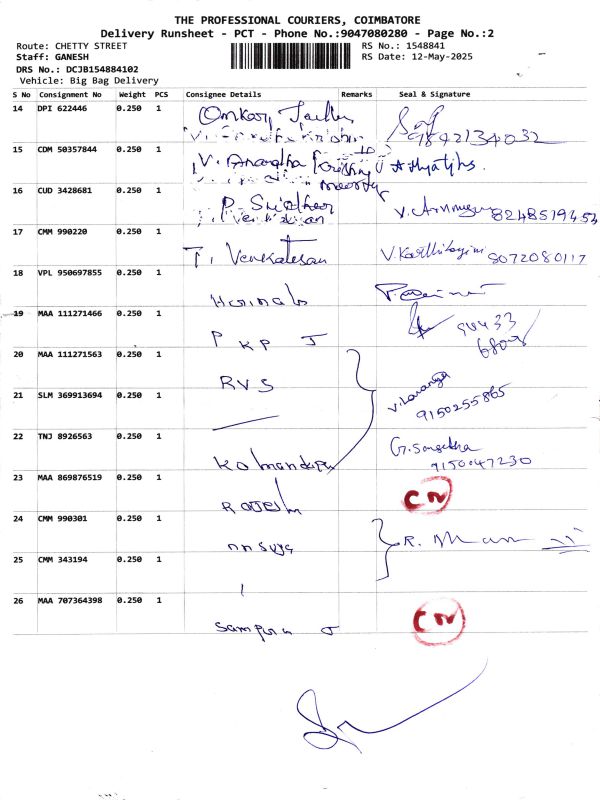 THE PROFESSIONAL COURIERS, COIMBATORE
Delivery Runsheet - PCT - Phone No.:9047080280 - Page No.:2
Route: CHETTY STREET
RS No.: 1548841
Staff: GANESH
RS Date: 12-May-2025
DRS No.: DCJB154884102
Vehicle: Big Bag Delivery
S No Consignment No Weight PCS Consignee Details Remarks Seal & Signature
14 DPI 622446 0.250 1 Omkar
9842134032
15 CDM 50357844 0.250 1 V. Anandha
16 CUD 3428681 0.250 1 P. Sridhar
8248519453
17 CMM 990220 0.250 1 T. Venkatesan V. Karthikayini 8072080117
18 VPL 950697855 0.250 1
19 MAA 111271466 0.250 1 P K P J
20 MAA 111271563 0.250 1 RVS
21 SLM 369913694 0.250 1 9150255865
22 TNJ 8926563 0.250 1 G. Sangetha
9150047230
23 MAA 869876519 0.250 1 Rajesh CN
24 CMM 990301 0.250 1 R.
25 CMM 343194 0.250 1
26 MAA 707364398 0.250 1 CN